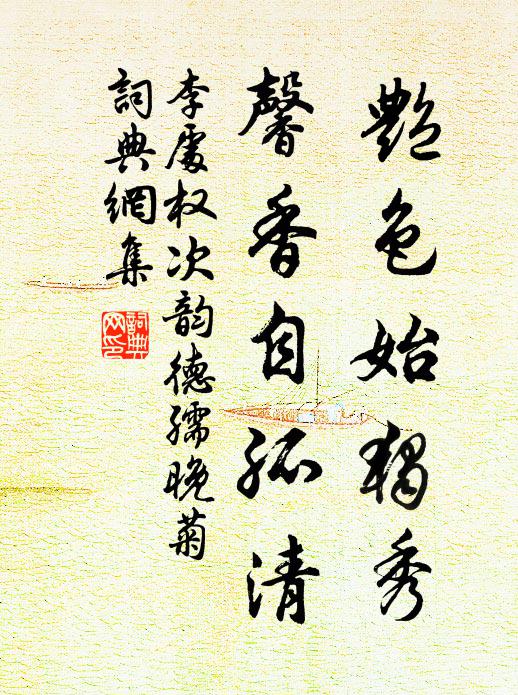 艷色始獨秀
馨香自孤清
李處权次韵德孺晚菊
詞典網集
詞典网印